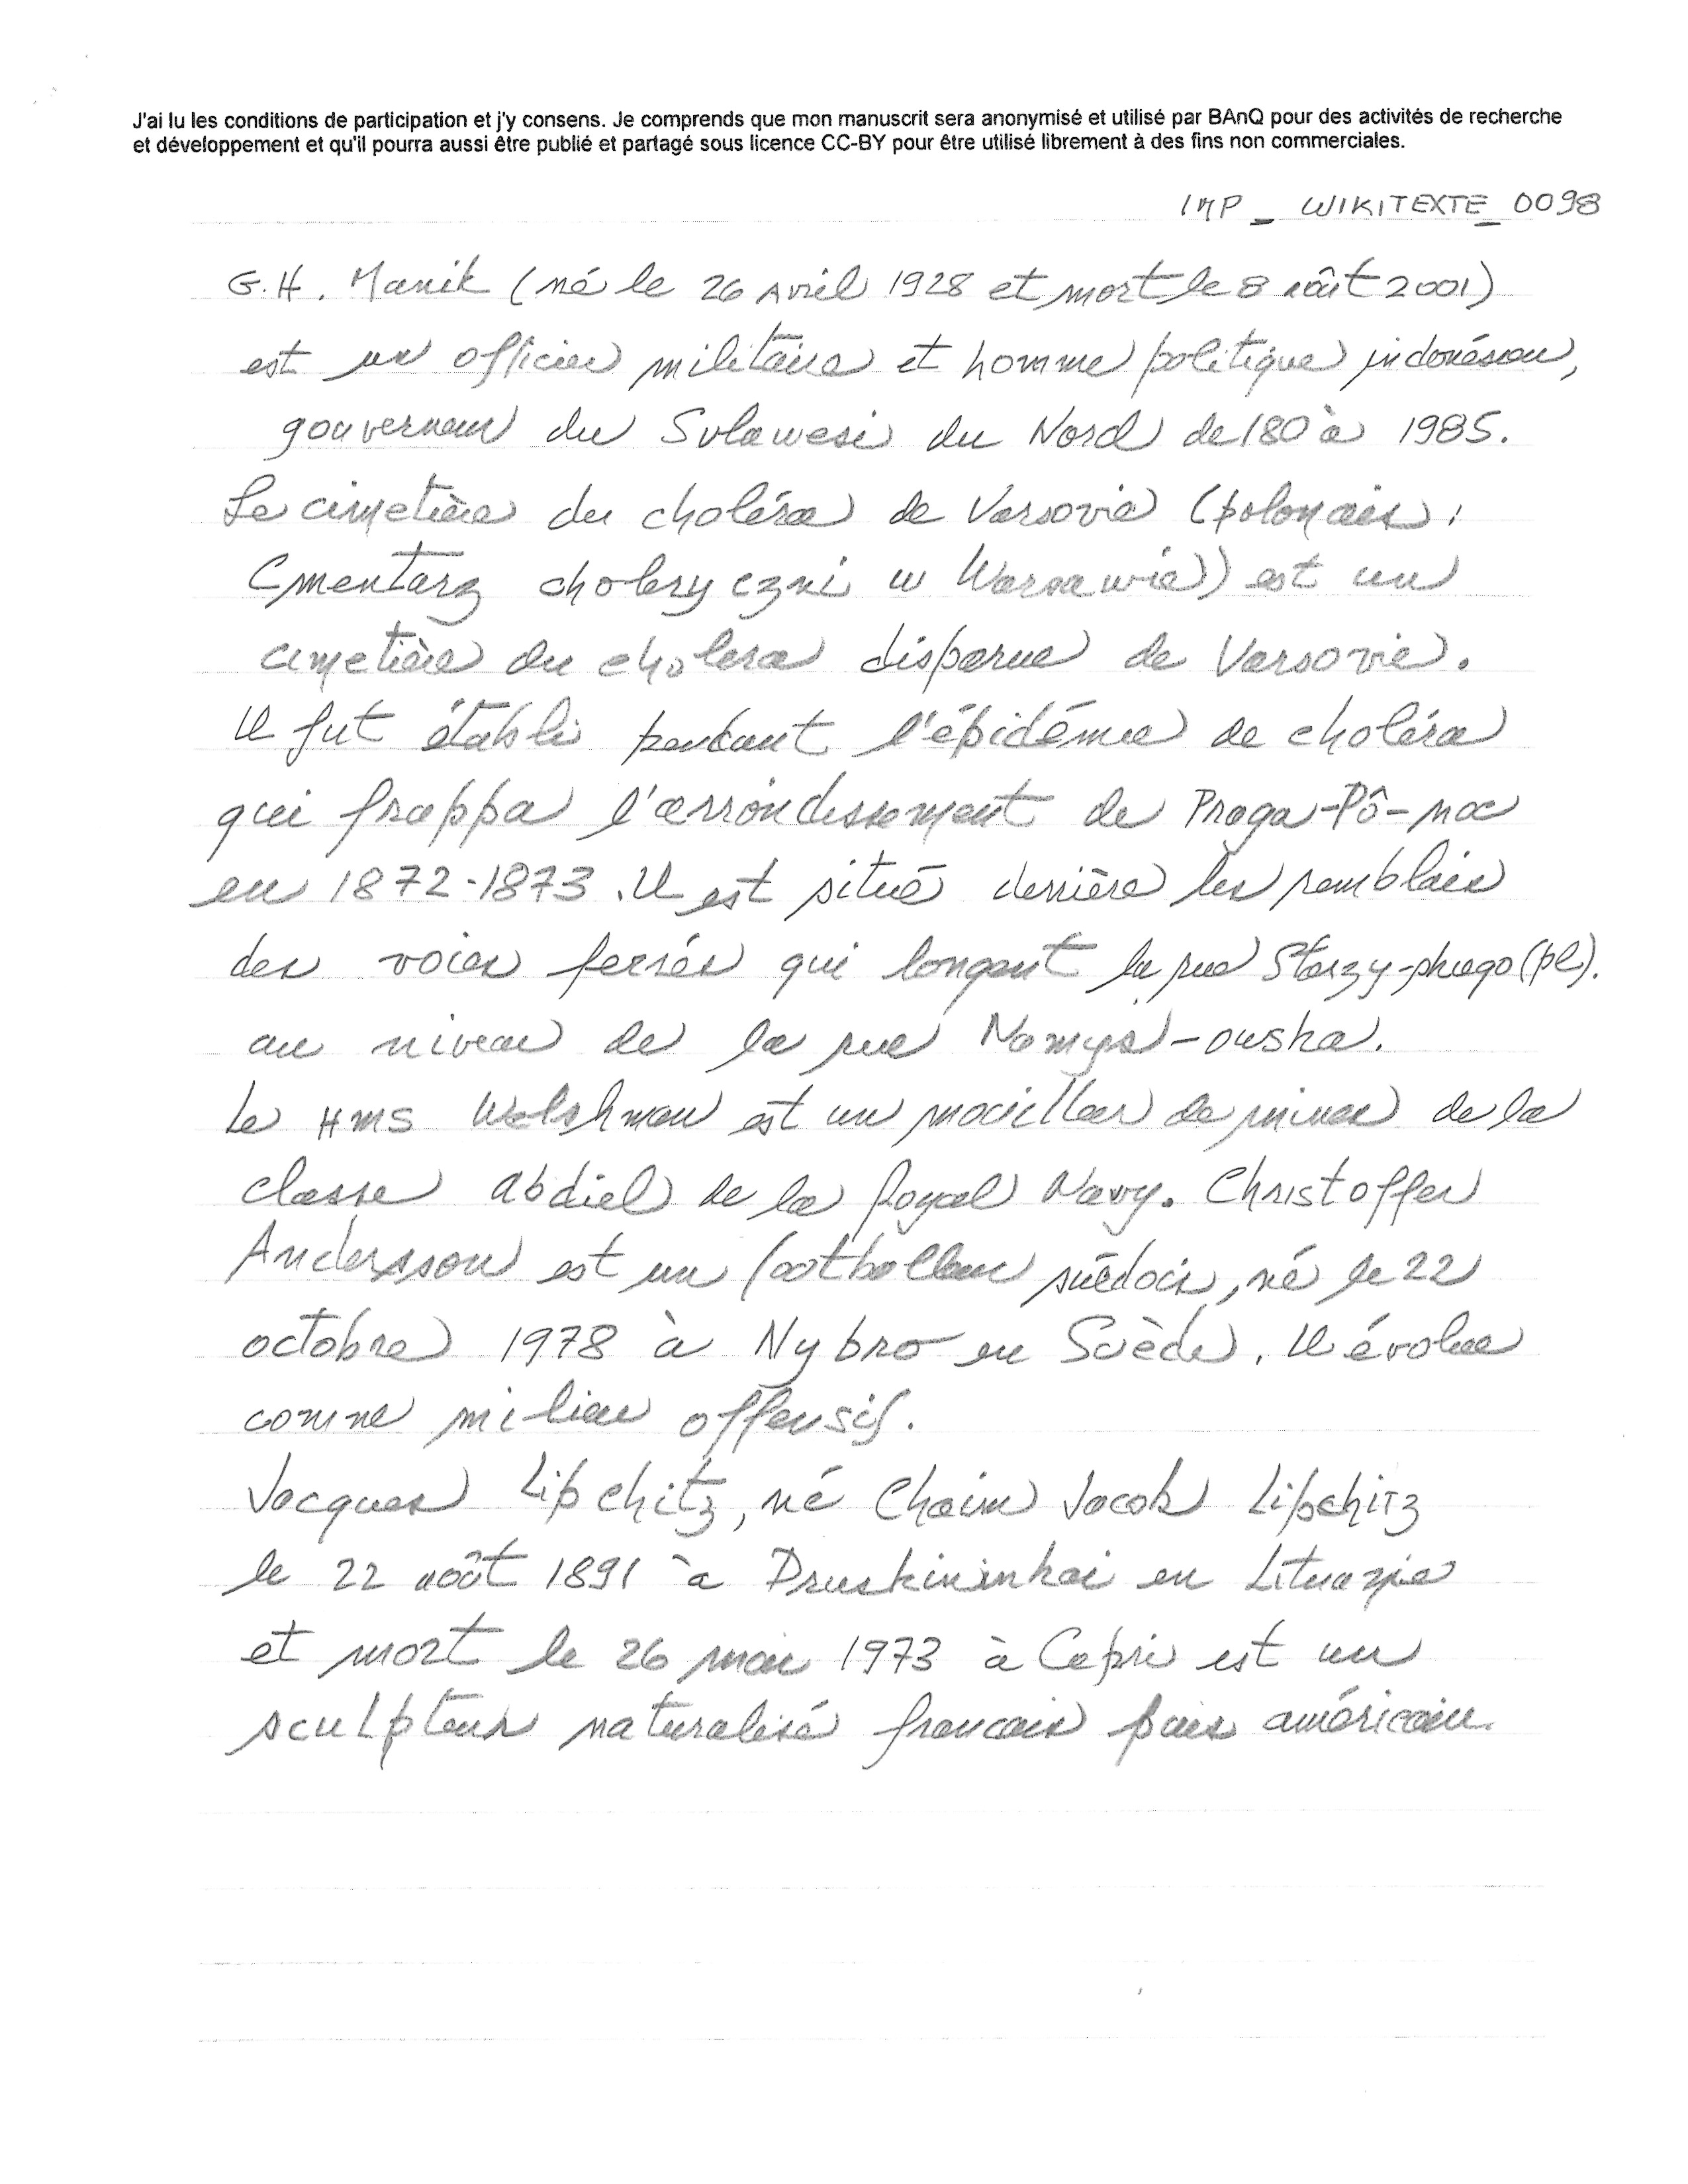 J'ai lu les conditions de participation et j'y consens. Je comprends que mon manuscrit sera anonymisé et utilisé par BAnQ pour des activités de recherche
et développement et qu'il pourra aussi être publié et partagé sous licence CC-BY pour être utilisé librement à des fins non commerciales.
IMP_WIKITEXTE_0098
G.H. Manik (né le 26 avril 1928 et mort le 8 août 2001)
est un officier militaire et homme politique indonésien,
gouverneur du Sulawesi du Nord de 180 à 1985.
Le cimetière du choléra de Varsovie (polonais :
Cmentarz choleryczni w Warsawie)) est un
cimetière du cholera disparue de Varsovie.
Il fut établi pendant l'épidémie de choléra
qui frappa l'arrondissement de Praga-Pô-na
en 1872-1873. Il est situé derrière les remblais
des voies ferrés qui longent la rue (pl).
au niveau de la rue
Le HMS Welshman est un mouilleur de mines de la
classe abdiel de la Royal Navy. Christoffer
Andersson est un footballeur suédois, né le 22
octobre 1978 à Nybro en Suède. Il évolue
comme milieu offensif.
Jacques Lipchitz, né Chaim Jacob Lipchitz
le 22 août 1891 à Druskininkai en Lituanie
et mort le 26 mai 1973 à Capri est un
sculpteur naturalisé francais puis américain.